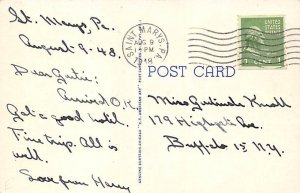 St. Marys, Pa.
August 9-48.
Dear Gertie:
Arrived O.K.
Got a good hotel.
Fine trip. All is
well.
Love from Harry
SAINT MARYS, PA.
AUG 9
PM
1948
UNITED STATES POSTAGE
1 CENT 1
POST CARD
Miss Gertrude Knoll
179 Highgate Ave
Buffalo 15 N.Y.